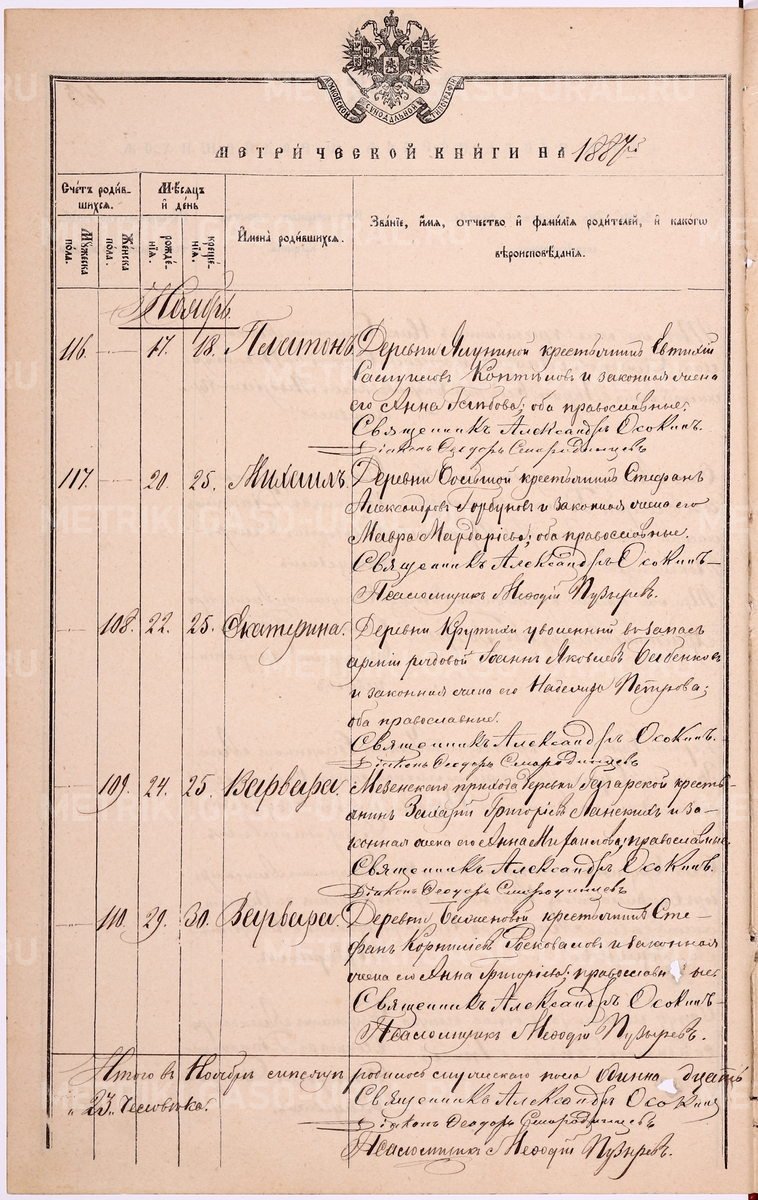 ДУХОВНОЙ СѴНОДАЛЬНОЙ ТИПОГРАФІИ
МЕТРИЧЕСКОЙ КНИГИ НА 1887 г.
Счетъ родив-
шихся.
Мѣсяцъ
и день
Имена родившихся.
Званіе, имя, отчество и фамилія родителей, и какого
вѣроисповѣданія.
Мужеска
пола.
Женска
пола.
рожде-
нія.
креще-
нія.
Ноябрь.
116. 17. 18. Платонъ. Деревни крестьянинъ Евтихій
Коптяловъ и законная жена
его Анна Глѣбова; оба православные.
Священникъ Александръ Осокинъ.
Діаконъ Ѳеодоръ Смородинцевъ
117. 20. 25. Михаилъ. Деревни Большой крестьянинъ Стефанъ
Александровъ Горбуновъ и законная жена его
Мавра Мардаріева; оба православные.
Священникъ Александръ Осокинъ
Псаломщикъ Меѳодій Пузыревъ.
108. 22. 25. Екатерина. Деревни Крутихи уволенный въ запасъ
арміи рядовой Іоаннъ Яковлевъ Бабенковъ
и законная жена его Надежда Петрова;
оба православные.
Священникъ Александръ Осокинъ.
Діаконъ Ѳеодоръ Смородинцевъ
109. 24. 25. Варвара. Мезенскаго прихода деревни Гагарской кресть-
янинъ Захарій Григорьевъ и за-
конная жена его Анна Михаилова; православные.
Священникъ Александръ Осокинъ.
Діаконъ Ѳеодоръ Смородинцевъ
110. 29. 30. Варвара. Деревни Баженовой крестьянинъ Сте-
фанъ Корниліевъ и законная
жена его Анна Григоріева; православные
Священникъ Александръ Осокинъ
Псаломщикъ Меѳодій Пузыревъ.
Итого въ Ноябрѣ мѣсяцѣ родилось мужескаго пола одиннадцать
23 человѣка. Священникъ Александръ Осокинъ
Діаконъ Ѳеодоръ Смородинцевъ
Псаломщикъ Меѳодій Пузыревъ.